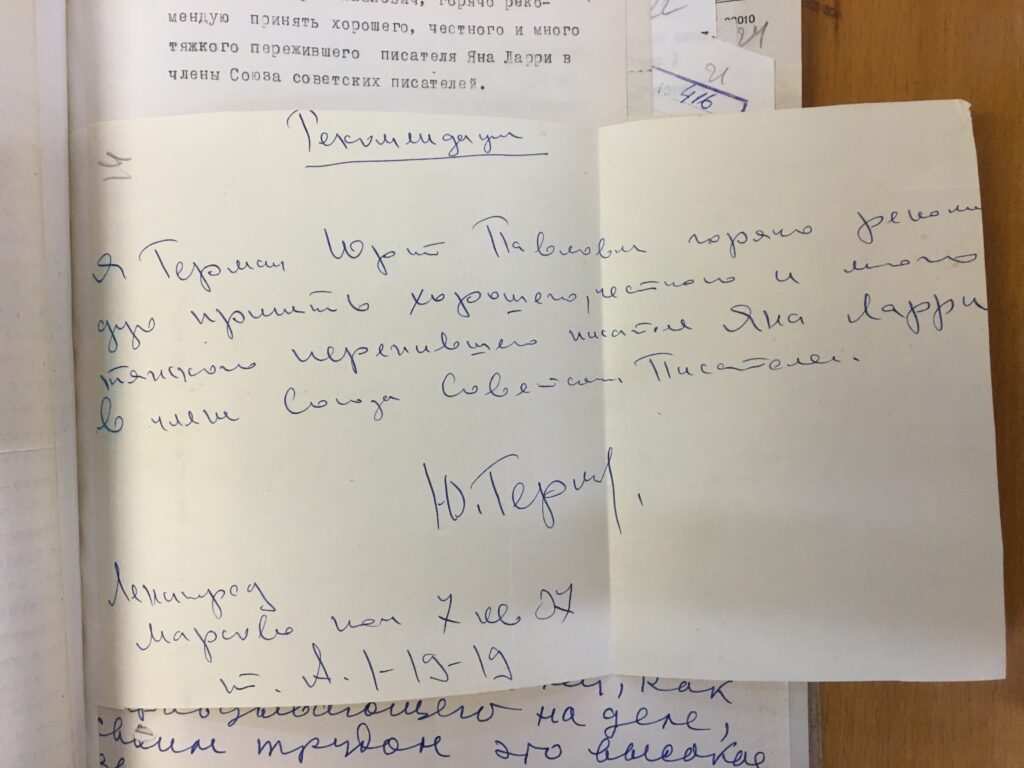 горячо реко-
мендую принять хорошего, честного и много
тяжкого пережившего писателя Яна Ларри в
члены Союза советских писателей.
22
20010
24
21
416
Рекомендация
14
Я Герман Юрий Павлович горячо рекомен
дую принять хорошего, честного и много
тяжкого пережившего писателя Яна Ларри
в члены Союза Советск. Писателей.
Ю. Герман.
Ленинград
Марсово пол 7 кв 37
т. А. 1-19-19
как
на деле,
своим трудом это высокое